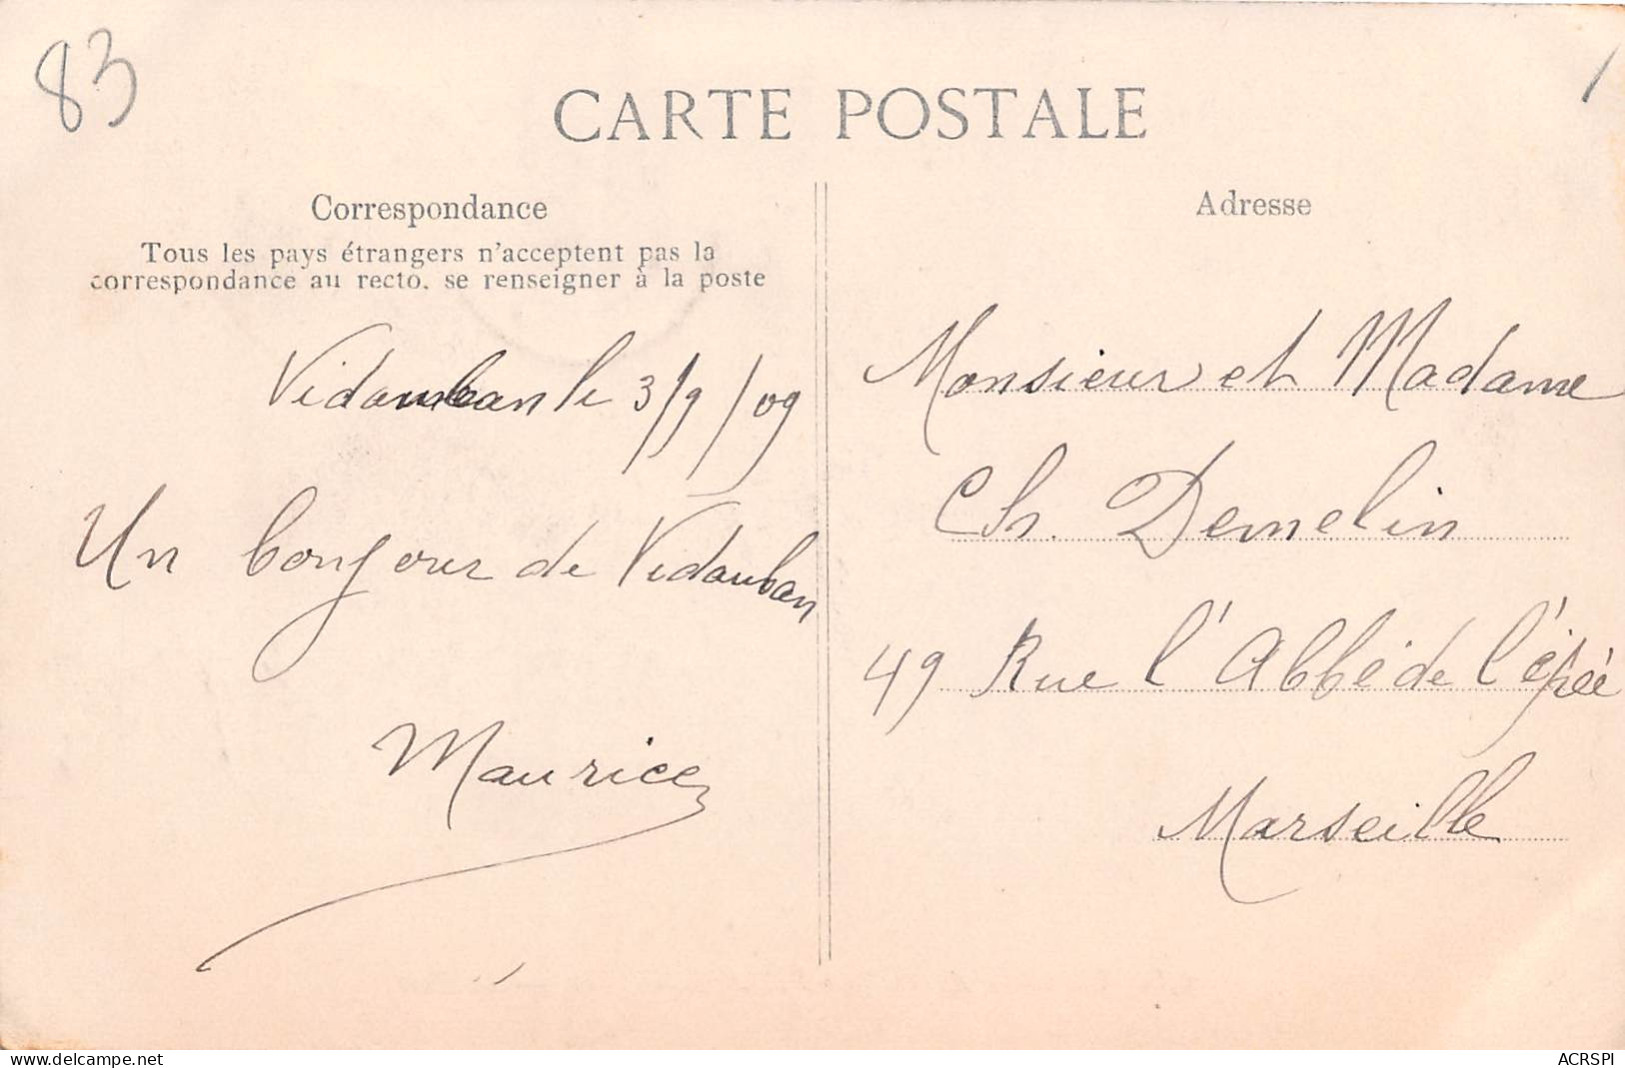 83
CARTE POSTALE
Correspondance
Tous les pays étrangers n'acceptent pas la
correspondance au recto. se renseigner à la poste
Vidauban le 3/9/09
Un bonjour de Vidauban
Maurice
Adresse
Monsieur et Madame
Ch. Demelin
49 Rue l'Abbé de l'épée
Marseille
delcampe.net
ACRSPI